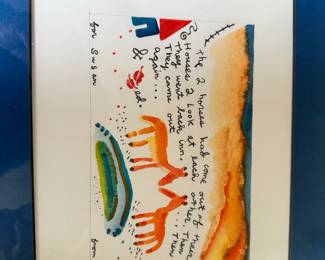 The 2 horses had come out of their
Houses 2 look at each other. Then
They went back inn. ... Then
They came out
again...
& ed.
for Susan from